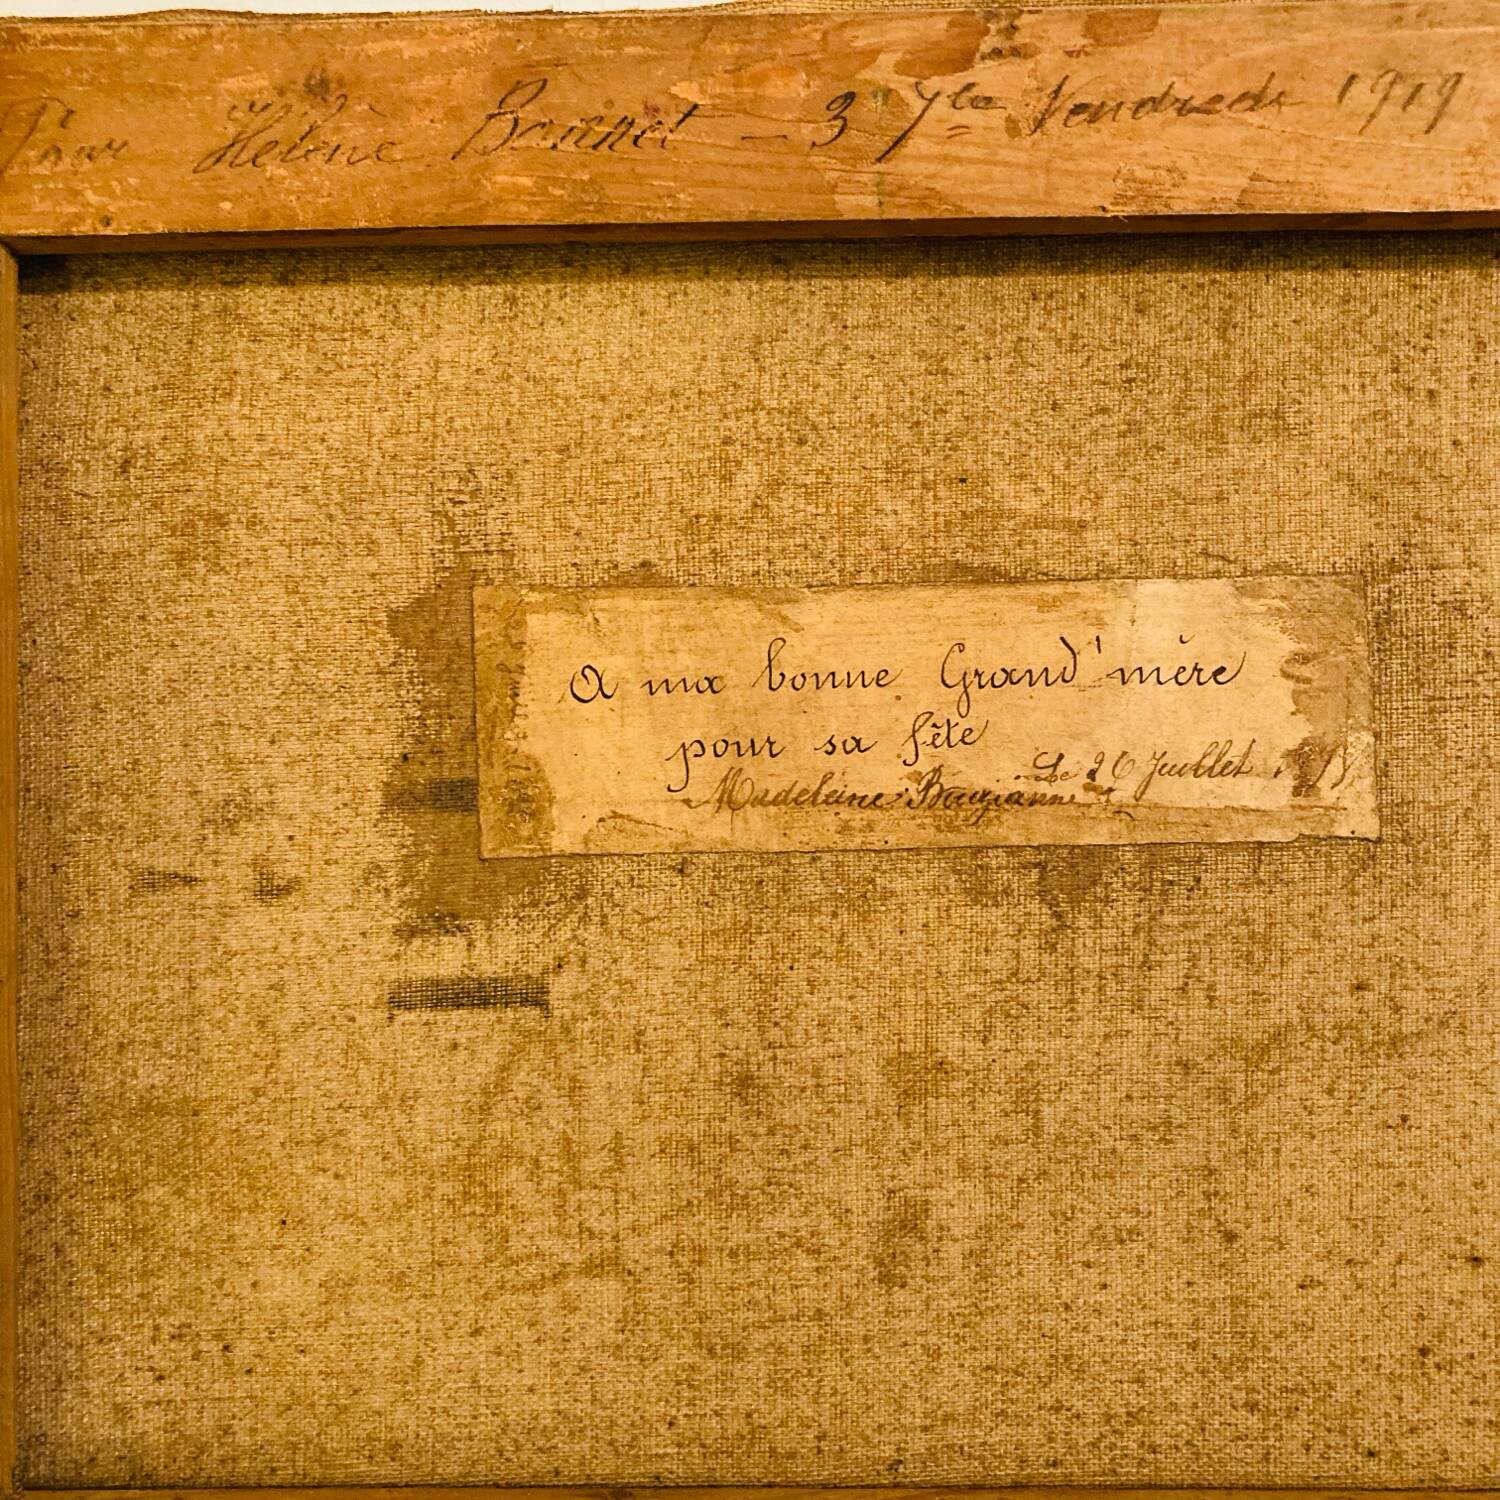 Pour Hélène Bonnet - 3 7bre Vendredi 1919
A ma bonne Grand'mère
pour sa fête
Le 26 Juillet
Madeleine